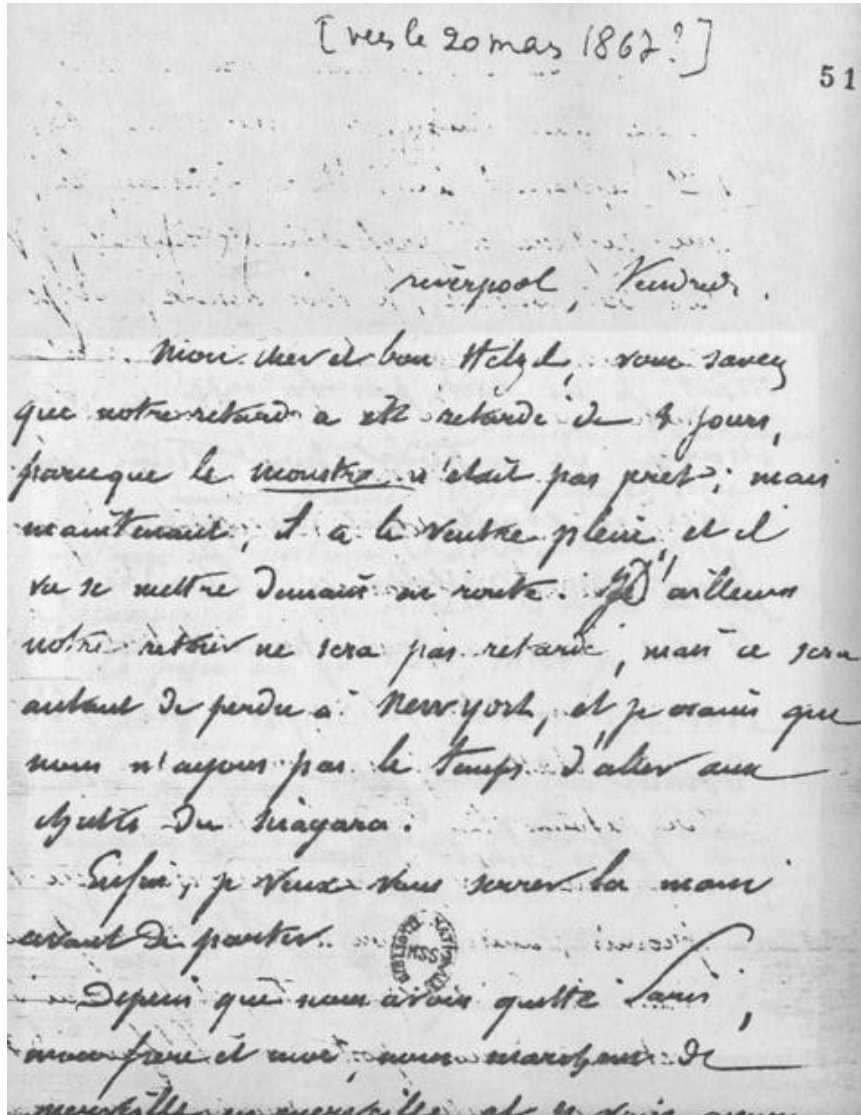 [vers le 20 mars 1867?]
51
Liverpool, Vendredi.
Mon cher et bon Hetzel, vous savez
que notre retard a été retardé de 8 jours,
parceque le monstre n'était pas prêt; mais
maintenant, il a le ventre plein, et il
va se mettre demain en route. D'ailleurs
notre retour ne sera pas retardé, mais ce sera
autant de perdu à New york, et je crains que
nous n'ayons pas le temps d'aller aux
chutes du Niagara.
Enfin, je veux vous serrer la main
avant de partir.
MSS
Depuis que nous avons quitté Paris,
mon frère et moi, nous marchons de
merveille en merveille, et je